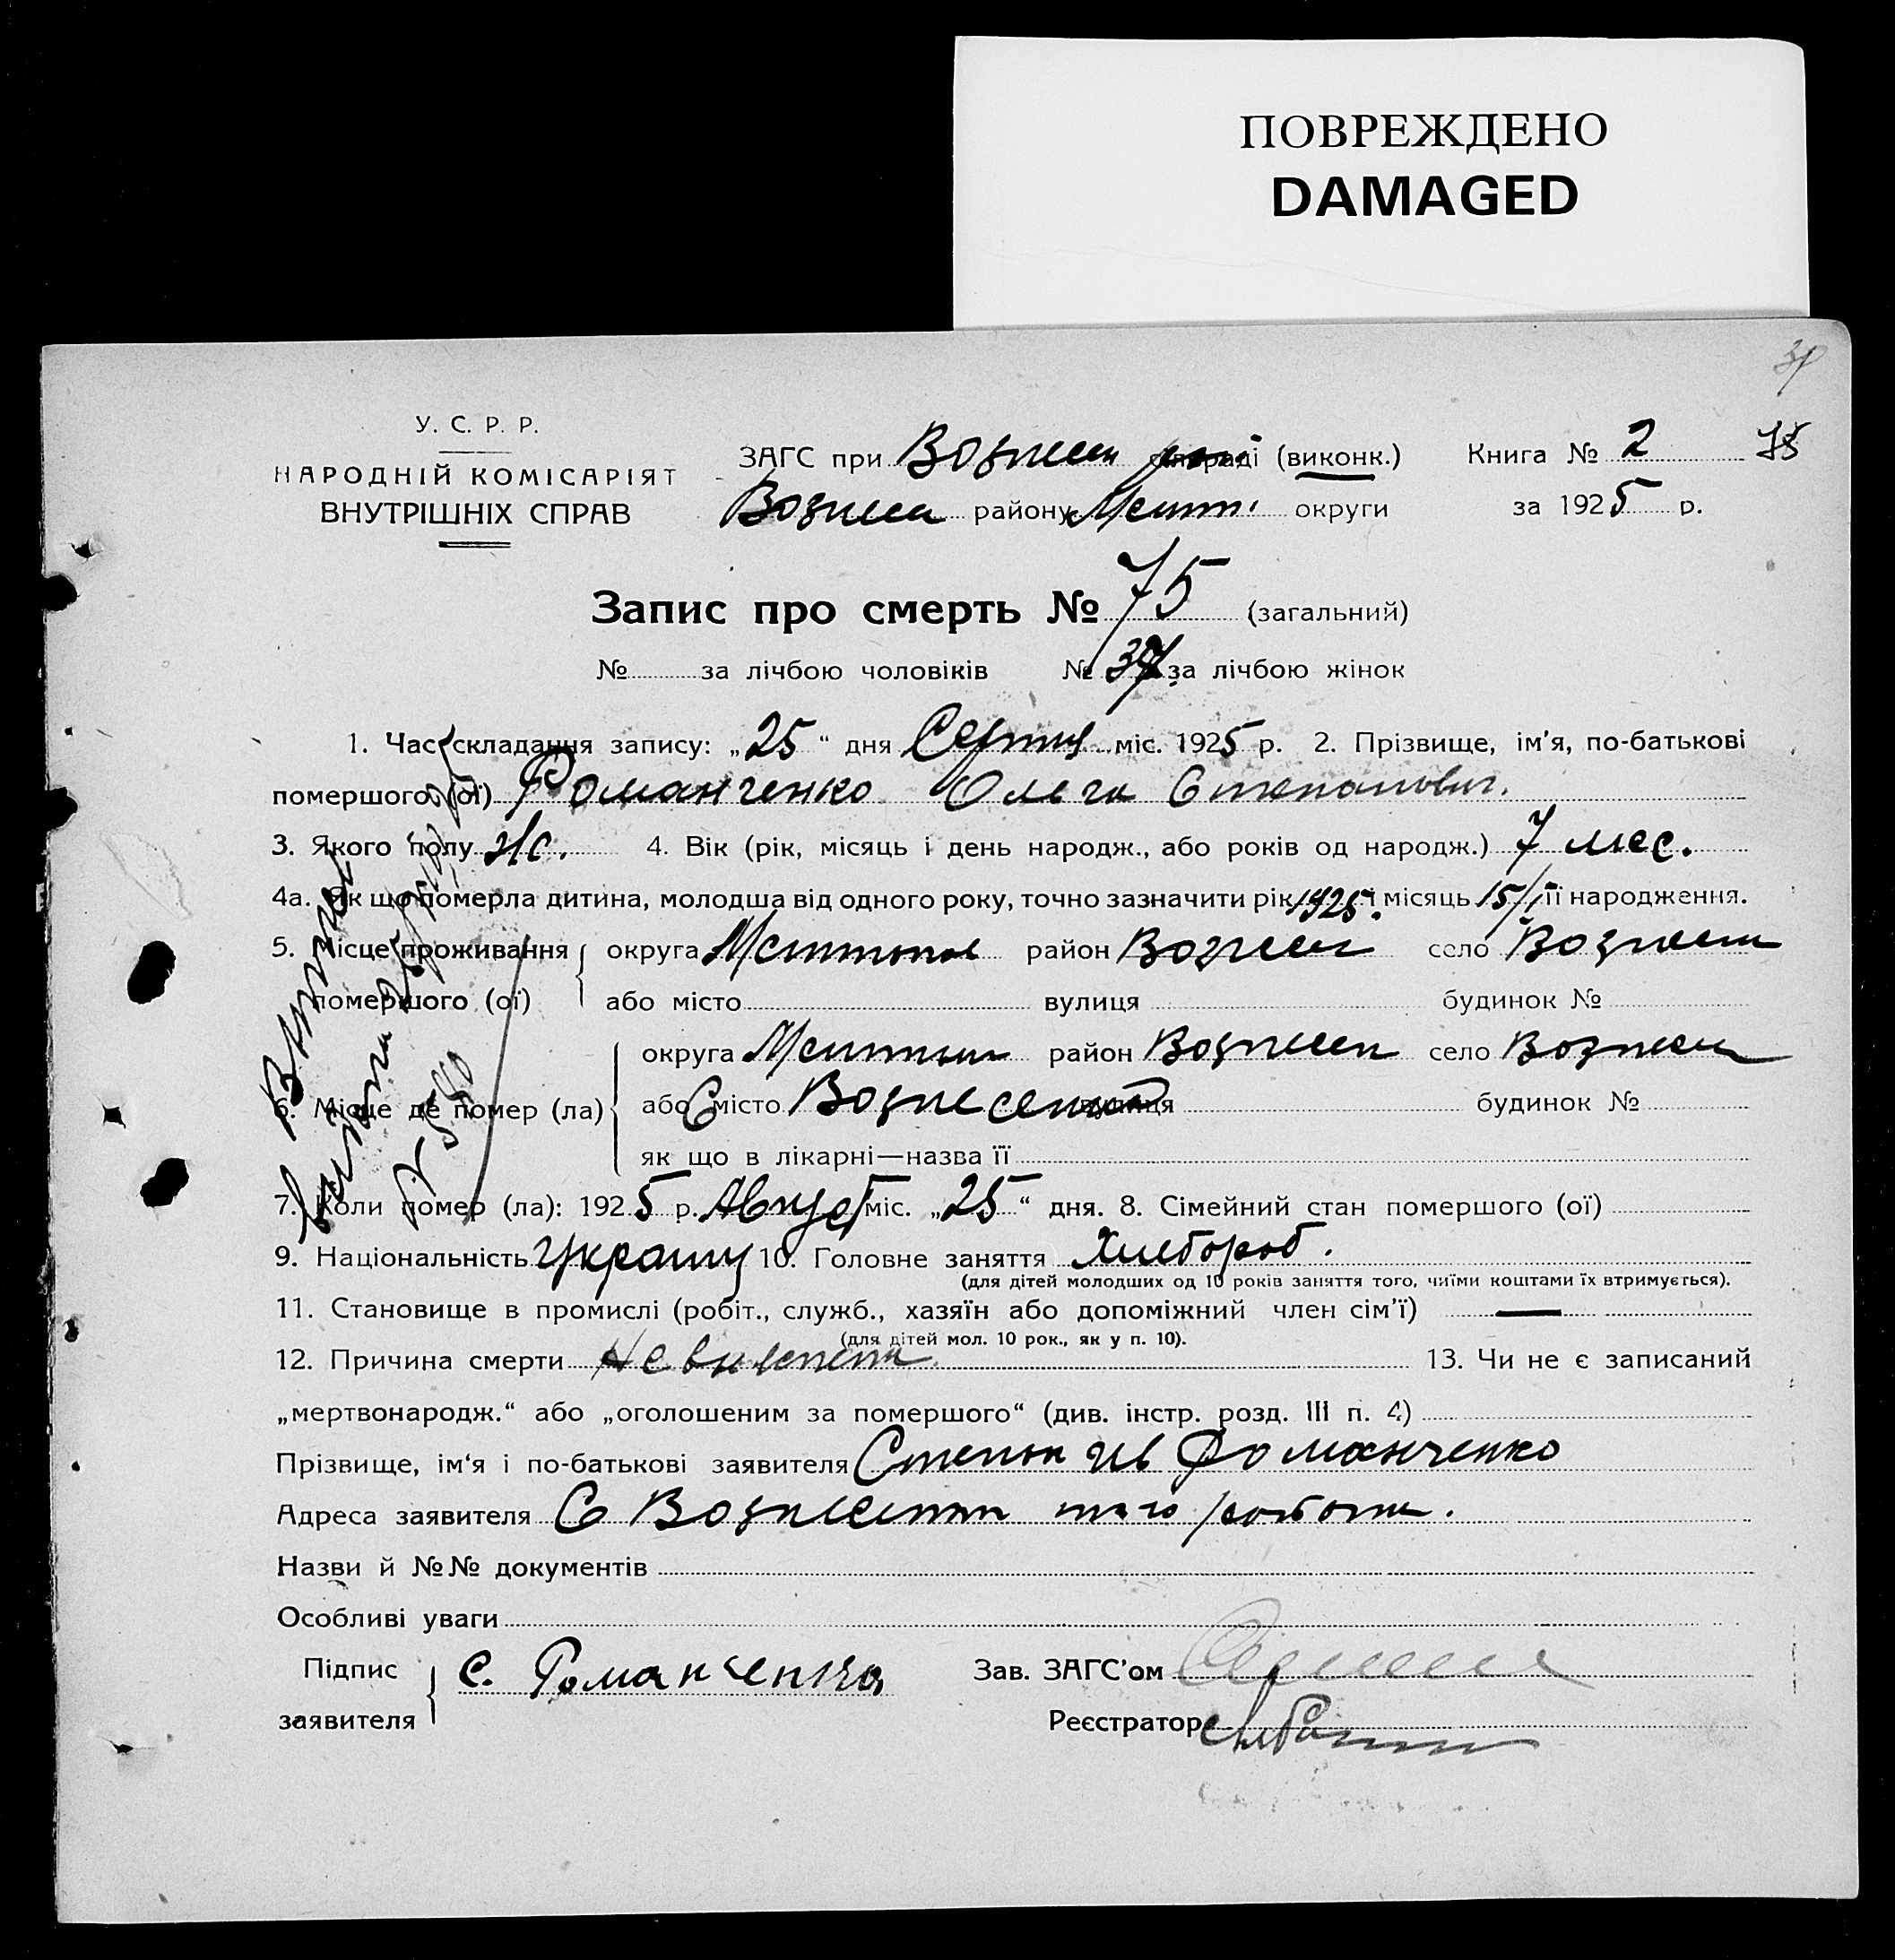 ПОВРЕЖДЕНО
DAMAGED
У. С. Р. Р.
НАРОДНІЙ КОМІСАРІЯТ
ВНУТРІШНІХ СПРАВ
ЗАГС при Вознесен (виконк.) Книга № 2 75
району округи за 1925 р.
Запис про смерть № 75 (загальний)
№ за лічбою чоловіків № 37 за лічбою жінок
1. Час складання запису: „25“ дня Серпня міс. 1925 р. 2. Прізвище, ім'я, по-батькові
помершого (ої) Романченко Ольга Степанович.
3. Якого полу Ж. 4. Вік (рік, місяць і день народж., або років од народж.) 7 мес.
4а. Як що померла дитина, молодша від одного року, точно зазначити рік 1925 і місяць 15/I її народження.
5. Місце проживання округа район Вознесен село Вознесен
помершого (ої) або місто вулиця будинок №
округа район Вознесен село Вознесен
6. Місце де помер (ла) або місто С Вознесенка вулиця будинок №
як що в лікарні—назва її
7. Коли помер (ла): 1925 р. Август міс. „25“ дня. 8. Сімейний стан помершого (ої)
9. Національність 10. Головне заняття Хлебороб.
(для дітей молодших од 10 років заняття того, чиїми коштами їх втримується).
11. Становище в промислі (робіт., служб., хазяїн або допоміжний член сім'ї) —
(для дітей мол. 10 рок., як у п. 10).
12. Причина смерти 13. Чи не є записаний
„мертвонародж.“ або „оголошеним за помершого“ (див. інстр. розд. III п. 4)
Прізвище, ім'я і по-батькові заявителя Степан Ив Романченко
Адреса заявителя С Вознесенка
Назви й №№ документів
Особливі уваги
Підпис заявителя С. Романченко Зав. ЗАГС'ом
Реєстратор